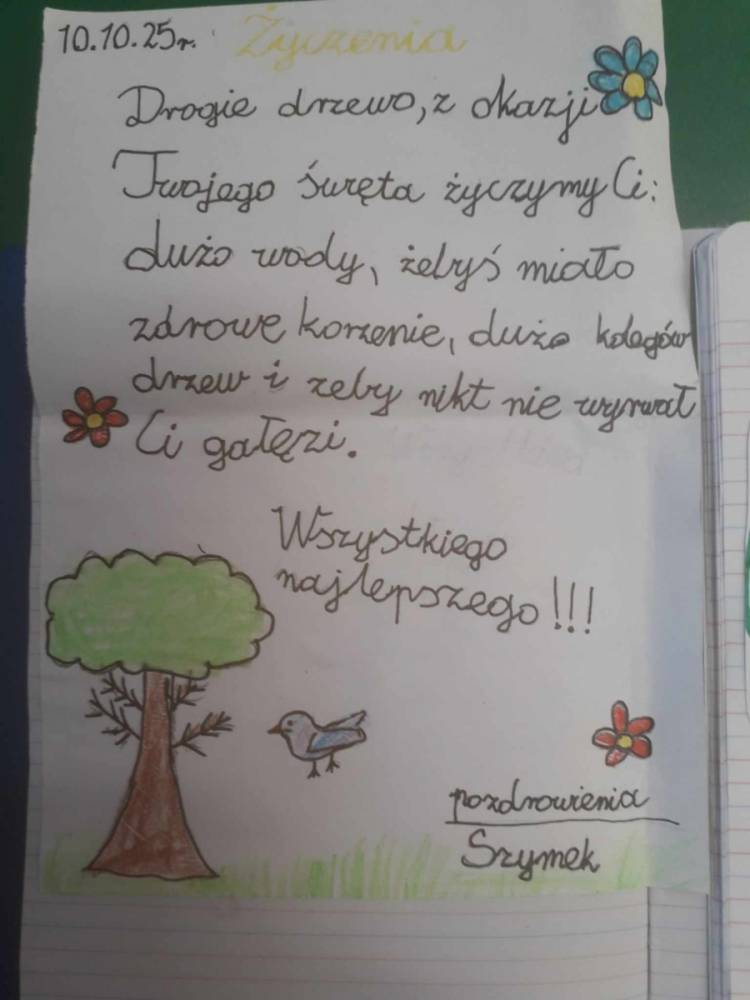 10.10.25r. Życzenia
Drogie drzewo, z okazji
Twojego święta życzymy Ci:
dużo wody, żebyś miało
zdrowe korzenie, dużo kolegów
drzew i zeby nikt nie wyrwał
Ci gałęzi.
Wszystkiego
najlepszego!!!
pozdrowienia
Szymek